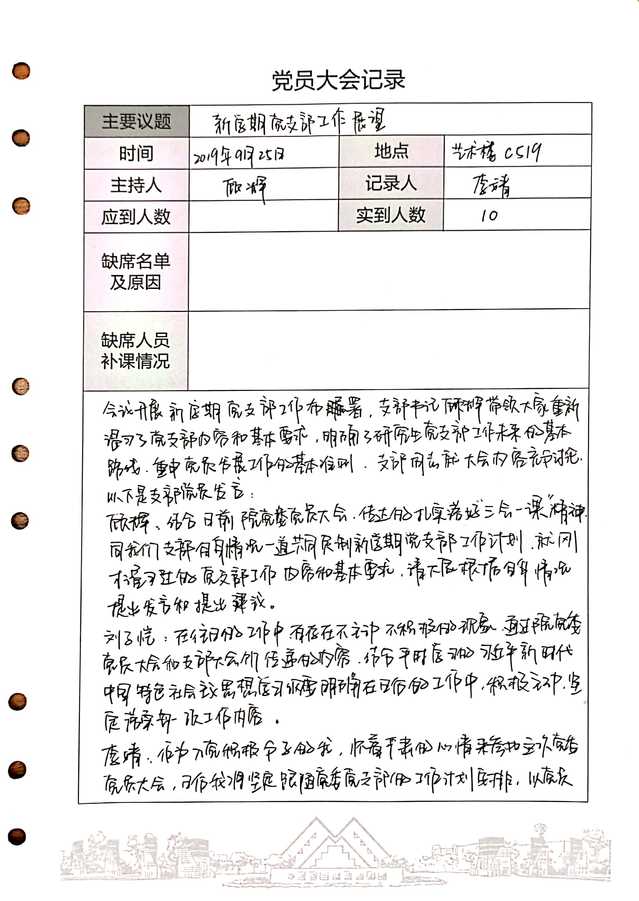 党员大会记录
主要议题 新区期党支部工作展望
时间 2019年9月25日 地点 艺术楼 C519
主持人 顾辉 记录人 李靖
应到人数 实到人数 10
缺席名单
及原因
缺席人员
补课情况
会议开展新区期党支部工作布署,支部书记顾辉带领大家重新
温习了党支部内容和基本要求,明确了研究生党支部工作未来的基本
路线.重申党员发展工作的基本准则.支部同志就大会内容充分讨论.
以下是支部党员发言:
顾辉、结合日前院党委党员大会.传达的扎实落好"三会一课"精神.
同我们支部自身情况一道共同民制新区期党支部工作计划.就刚
才温习过的党支部工作内容和基本要求,请大家根据自身情况
提出发言和提出建议。
刘子恺:在往日的工作中有存在不主动不积极的现象.通过院党委
党员大会和支部大会所传递的内容.结合平时学习的习近平新时代
中国特色社会主义思想学习必要明确在日后的工作中,积极主动.坚
定落实每一项工作内容。
李靖、作为入党积极分子的我,怀着平素的心情来参加这次党委
党员大会,日后我将坚定跟随党委党支部的工作计划安排,以党员